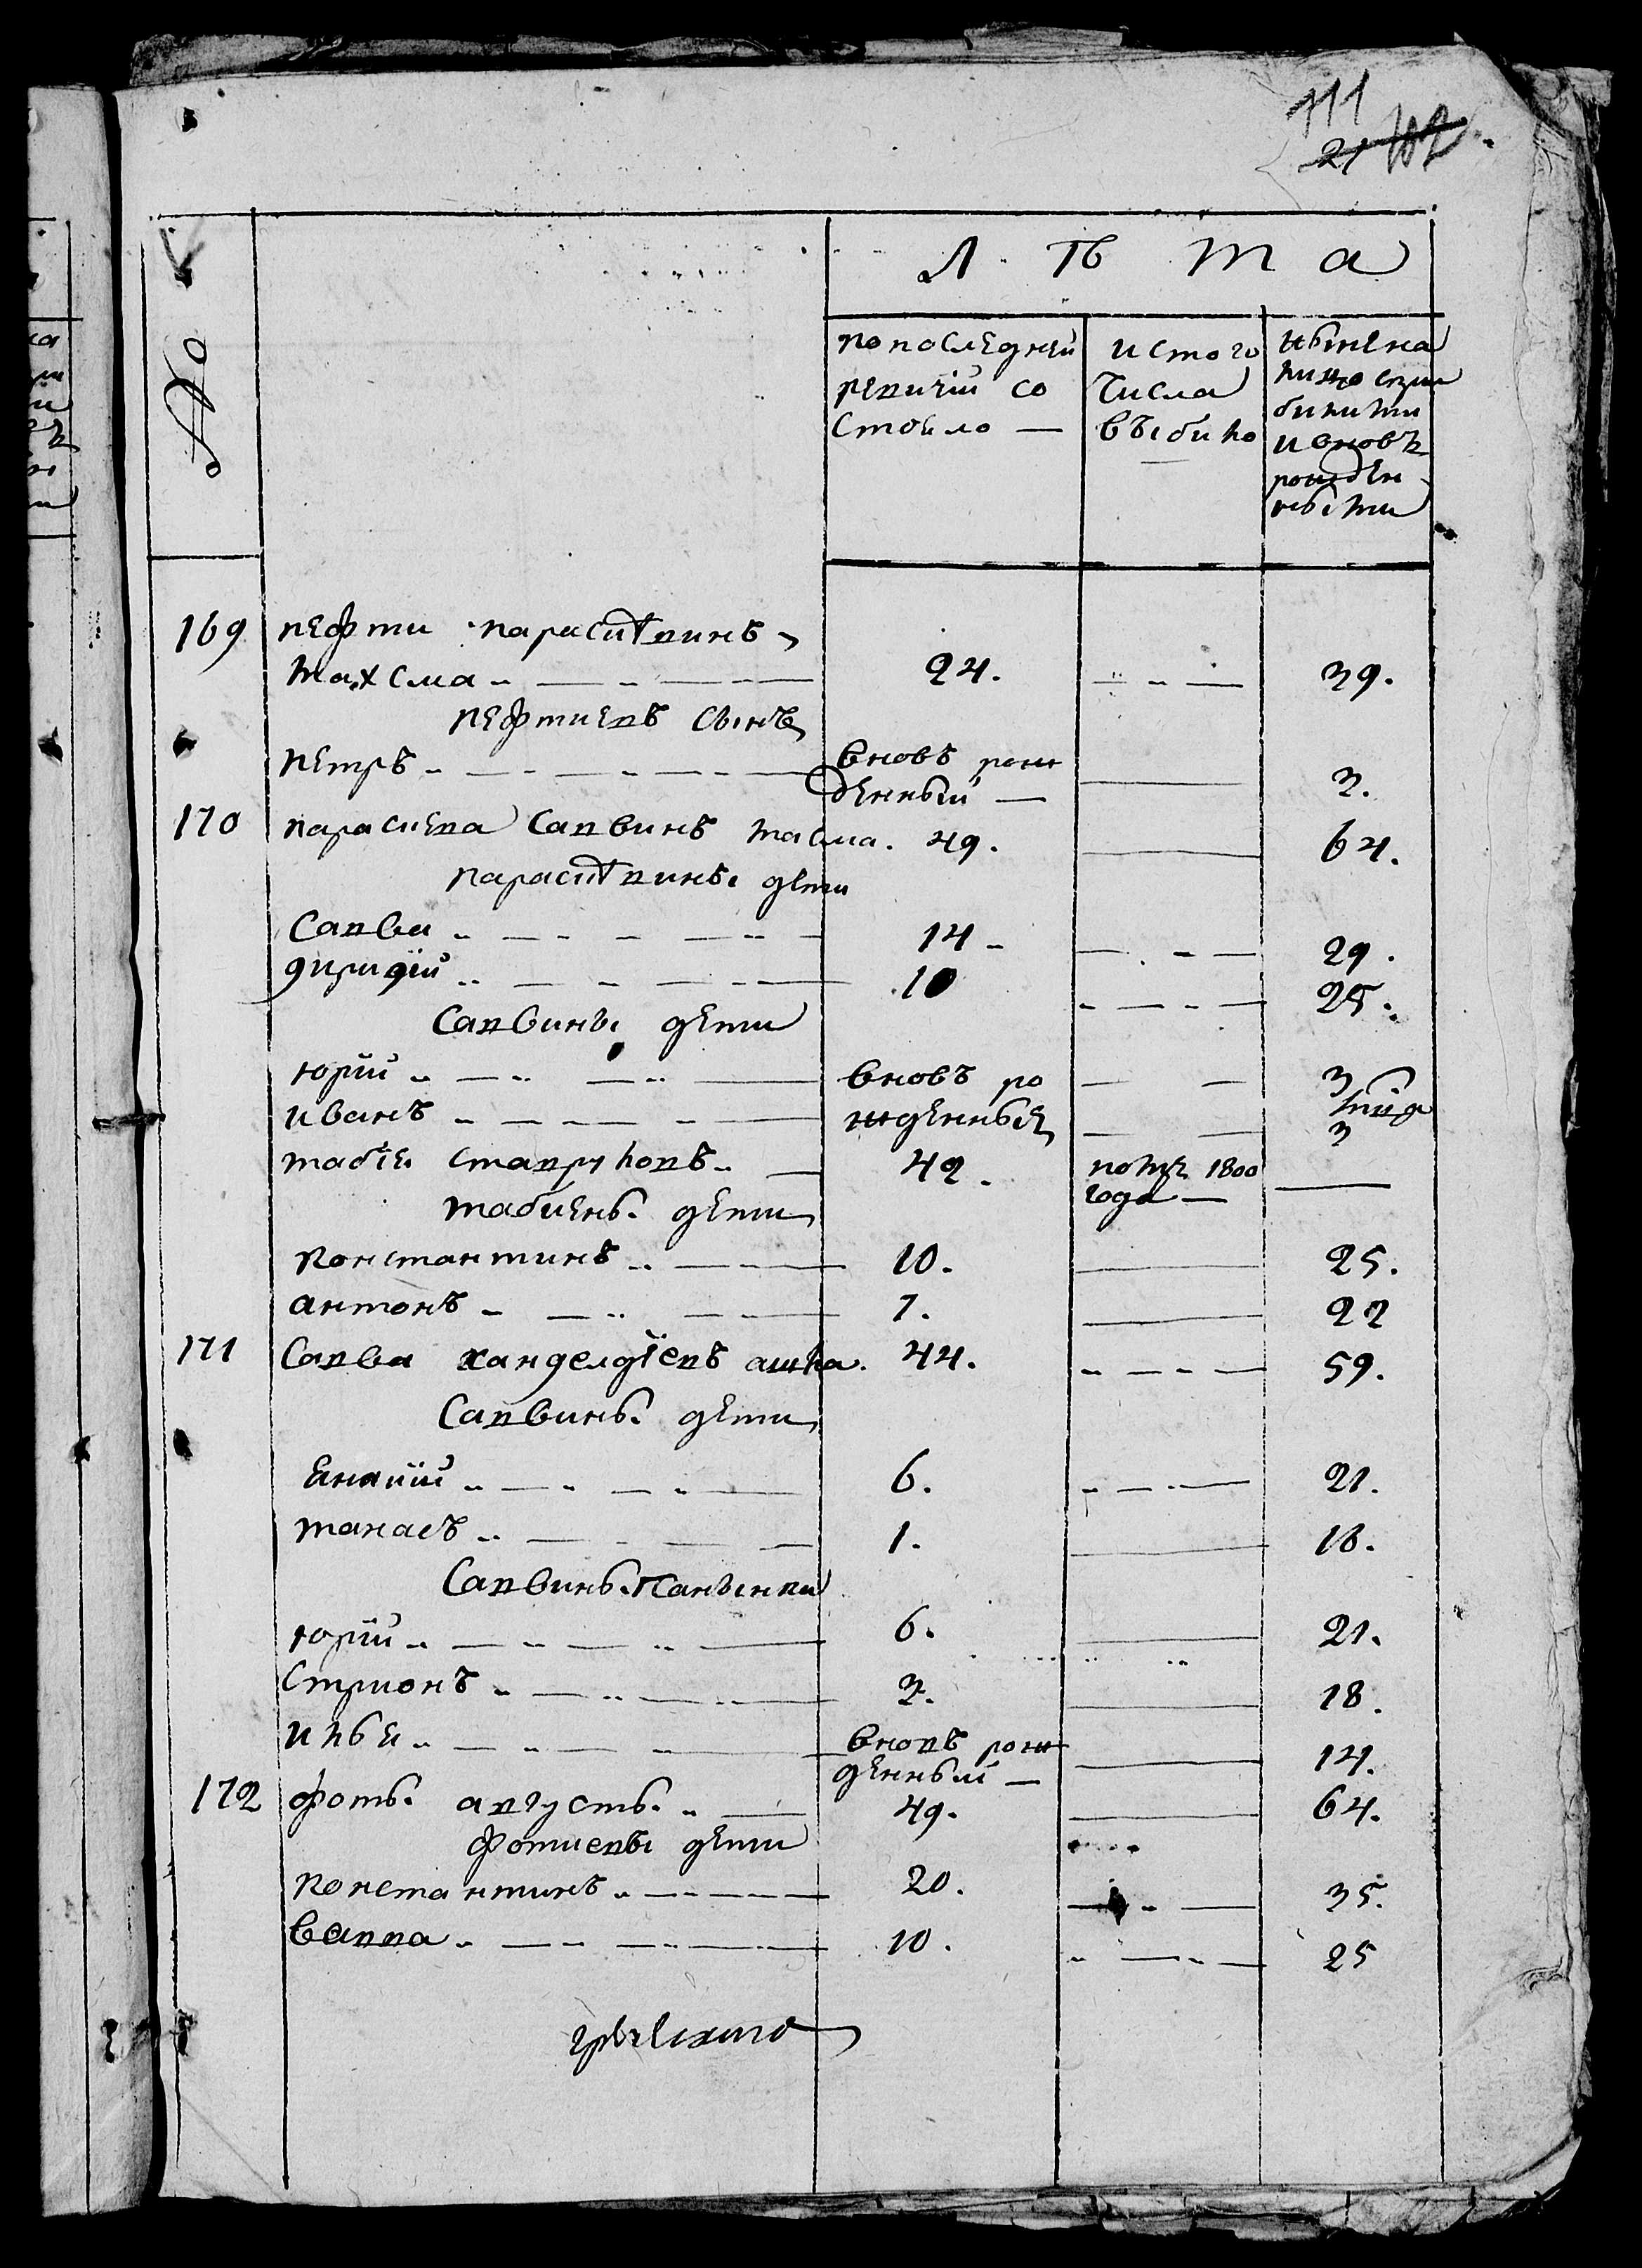 111
21 102
№
Лѣта
по последней ревизіи состояло —
ис того числа выбыло
ныне на лицо с прибылыми и вновь рожденными
169 пефти парасивинъ,
тахсма 24. 39.
пефтиевъ сынъ
петръ вновь рожденный — 3.
170 парасиева Савинъ тасма. 49. 64.
парасивины дети
Савва 14 29.
дпридїй 10 25.
Саввины дети
юрїй вновь ро 3
иванъ жденные 3
табїя 42. 1800 года —
табиевы дети
константинъ 10. 25.
антонъ 7. 22
171 Савва ханделдїевъ ашла. 44. 59.
Саввины дети
6. 21.
танасъ 1. 16.
Саввины
юрїй 6. 21.
Стрионъ 3. 18.
илья вновь рожденный — 14.
172 фоты августы 49. 64.
Фотиевы дети
константинъ 20. 35.
Савва 10. 25